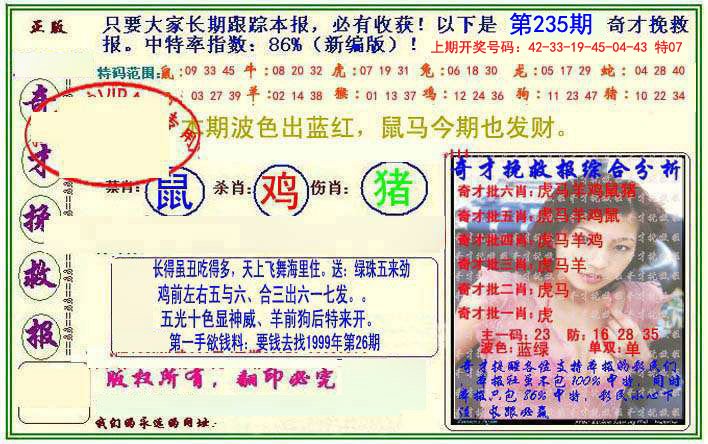 正版
只要大家长期跟踪本报，必有收获！以下是 第235期 奇才挽救
报。中特率指数：86%（新编版）！ 上期开奖号码：42-33-19-45-04-43 特07
特码范围:鼠:09 33 45 牛:08 20 32 虎:07 19 31 兔:06 18 30 龙:05 17 29 蛇:04 28 40
03 27 39 羊:02 14 38 猴:01 13 37 鸡:12 24 36 狗:11 23 47 猪:10 22 34
本期波色出蓝红，鼠马今期也发财。
奇才挽救报
禁肖: 鼠 杀肖: 鸡 伤肖: 猪
长得虽丑吃得多，天上飞舞海里住。送：绿珠五来劲
鸡前左右五与六、合三出六一七发。。
五光十色显神威、羊前狗后特来开。
第一手欲钱料：要钱去找1999年第26期
版权所有，翻印必究
我们的永远的网址：
奇才挽救报综合分析
奇才批六肖:虎马羊鸡鼠猪
奇才批五肖:虎马羊鸡鼠
奇才批四肖:虎马羊鸡
奇才批三肖:虎马羊
奇才批二肖:虎马
奇才批一肖:虎
主一码: 23 防: 16 28 35
波色: 蓝绿 单双: 单
奇才提醒各位支持本报的彩民们
，本报社虽不包100%中特，同时
本报只包 86%中特，彩民小心下
注 。长跟必赢